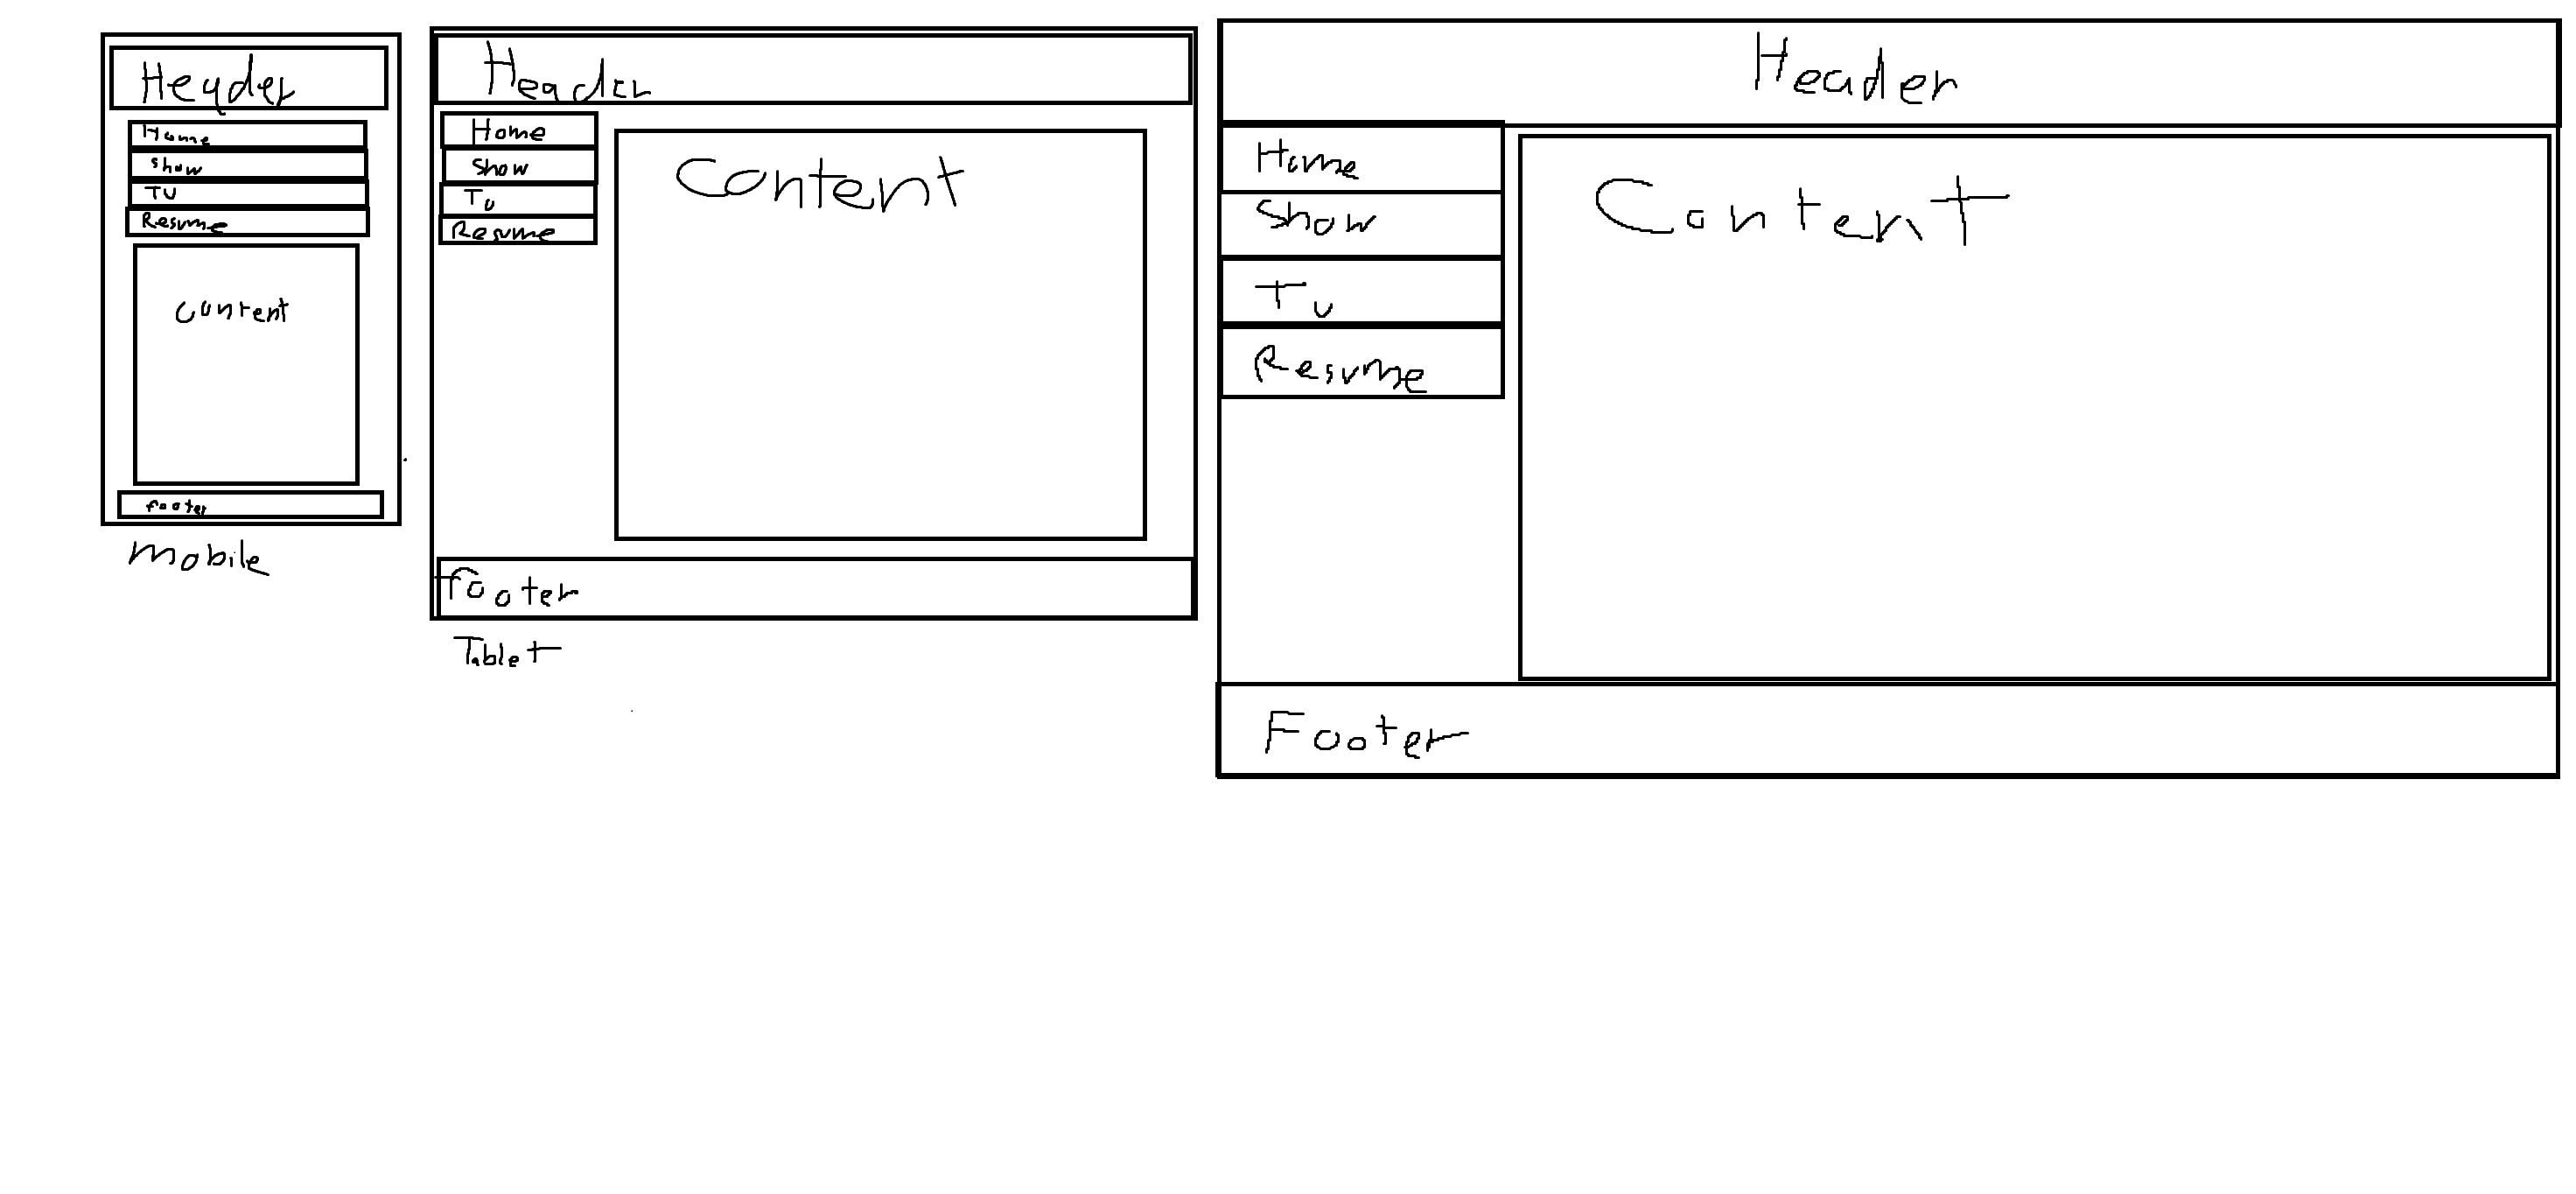 Header
Home
Show
TV
Resume
Content
Footer
Mobile
Header
Home
Show
Tv
Resume
Content
Footer
Tablet
Header
Home
Show
Tv
Resume
Content
Footer